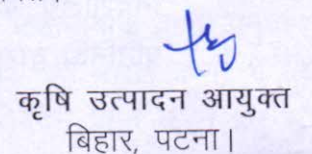 कृषि उत्पादन आयुक्त
बिहार, पटना।